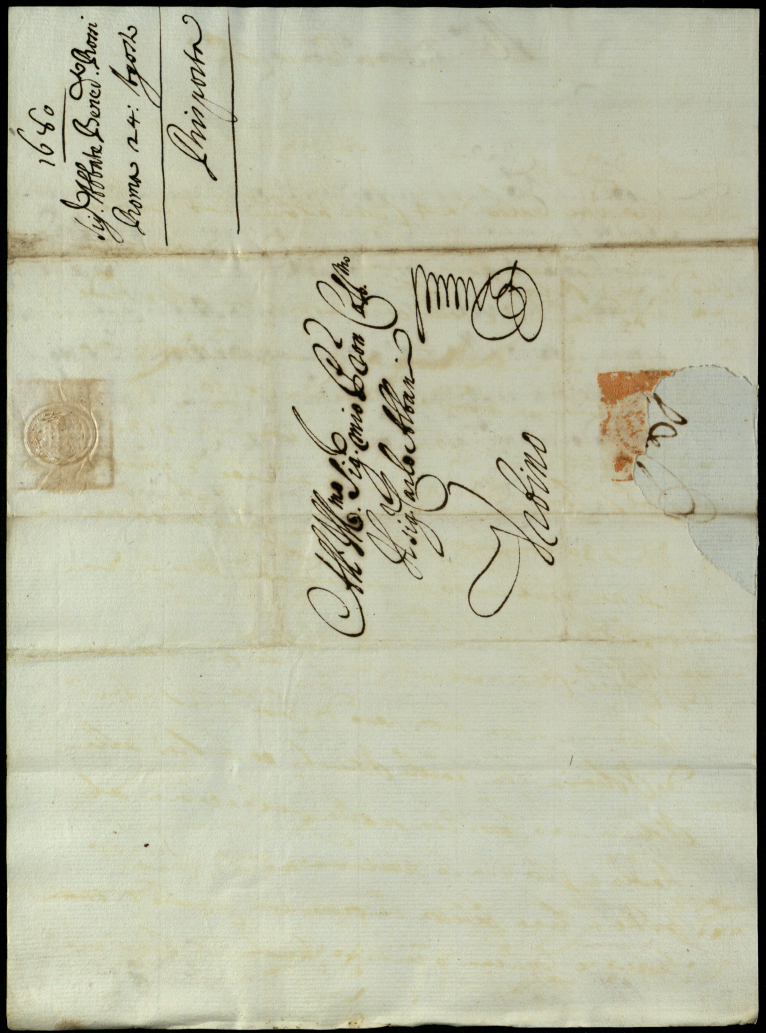 1680
Sig.r Abbate Bened.o Romi
Roma 24: Agosto
Risposta
All' Ill.mo Sig.r
Sig.r mio P.ron Col.mo
Il sig.r Carlo Albani
Urbino